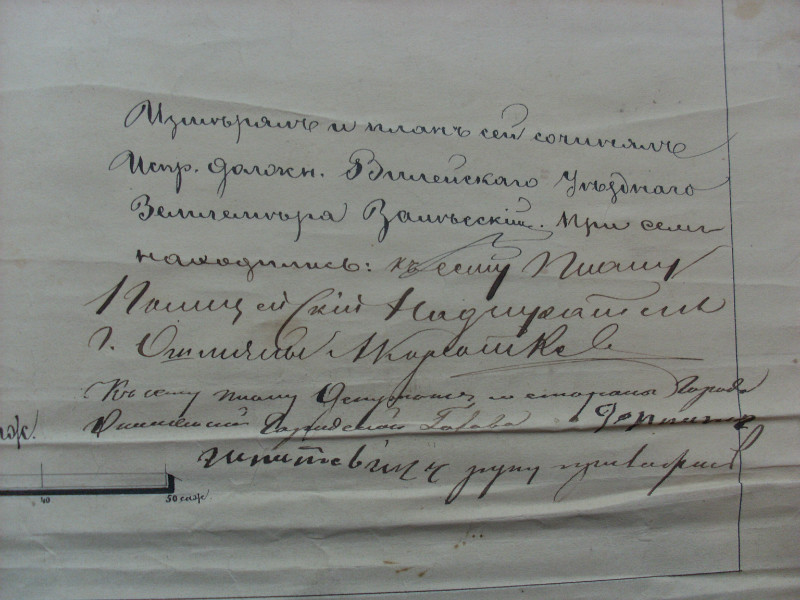 Измѣрялъ и планъ сей сочинялъ
Испр. должн. Вилейскаго Уѣзднаго
Землемѣра Залѣсскій. При семъ
находились: къ сему плану
Полицейскій Надзиратель
г. Ошмяны
Къ сему плану Депутатъ со стороны Города
Ошмяны Городской Голова
руку приложилъ
40
50 саж.